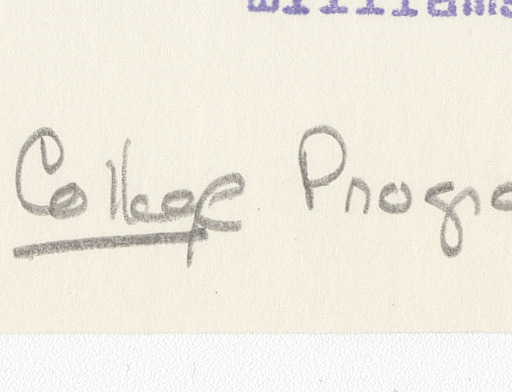 Williams
College Progra